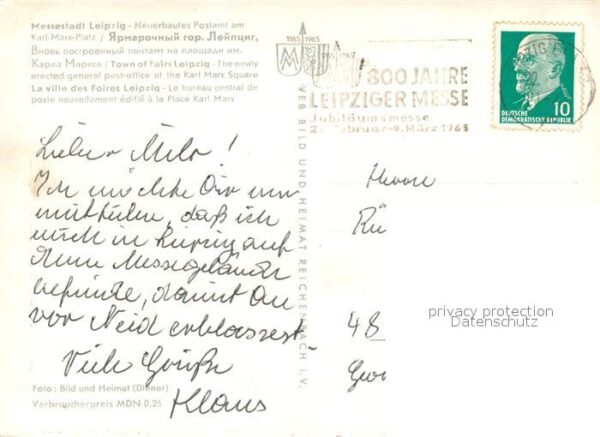 Messestadt Leipzig - Neuerbautes Postamt am
Karl-Marx-Platz / Ярмарочный гор. Лейпциг,
Вновь построенный почтамт на площади им.
Карла Маркса / Town of Fairs Leipzig - The newly
erected general post-office at the Karl Marx Square
La ville des Foires Leipzig - Le bureau central de
poste nouvellement édifié à la Place Karl Marx
Lieber Milo!
Ich möchte Dir nur
mitteilen, daß ich
mich in Leipzig auf
dem Messegelände
befinde, damit Du
vor Neid erblassest.
Viele Grüße
Klaus
Foto: Bild und Heimat (Diener)
Verbraucherpreis MDN 0,25
VEB BILD UND HEIMAT REICHENBACH I. V.
1165 1965
MM
800 JAHRE
LEIPZIGER MESSE
Jubiläumsmesse
Februar-9. März 1965
10
DEUTSCHE
DEMOKRATISCHE REPUBLIK
Herrn
Rü
48
privacy protection
Datenschutz